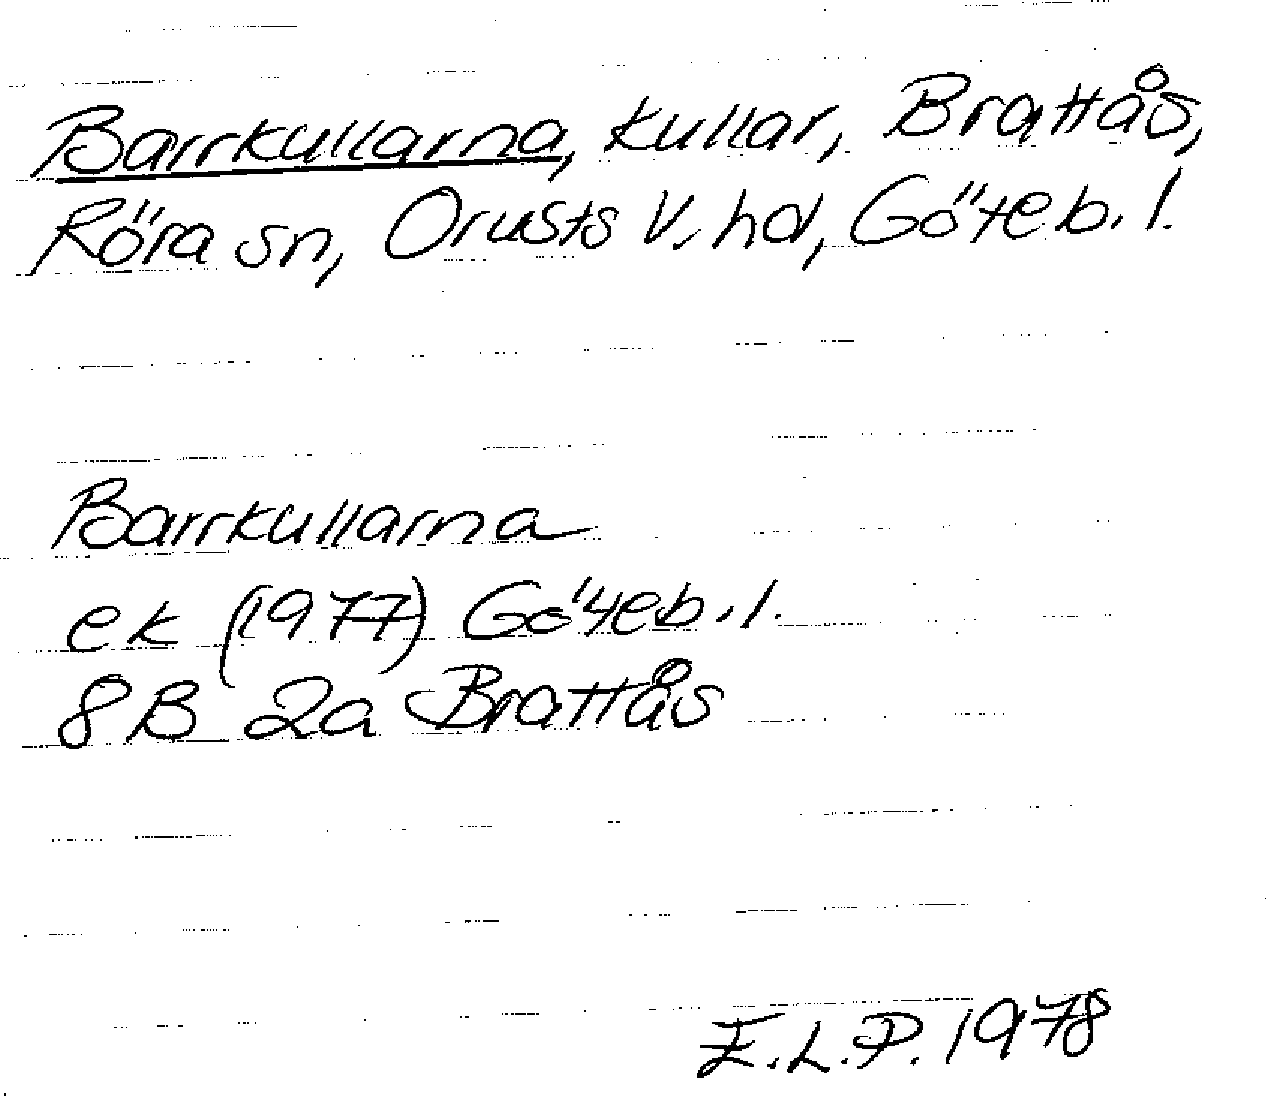 Barrkullarna, kullar, Brattås,
Röra sn, Orusts V. hd, Göteb. l.
Barrkullarna
ek (1977) Göteb. l.
8B 2a Brattås
E.L.P. 1978